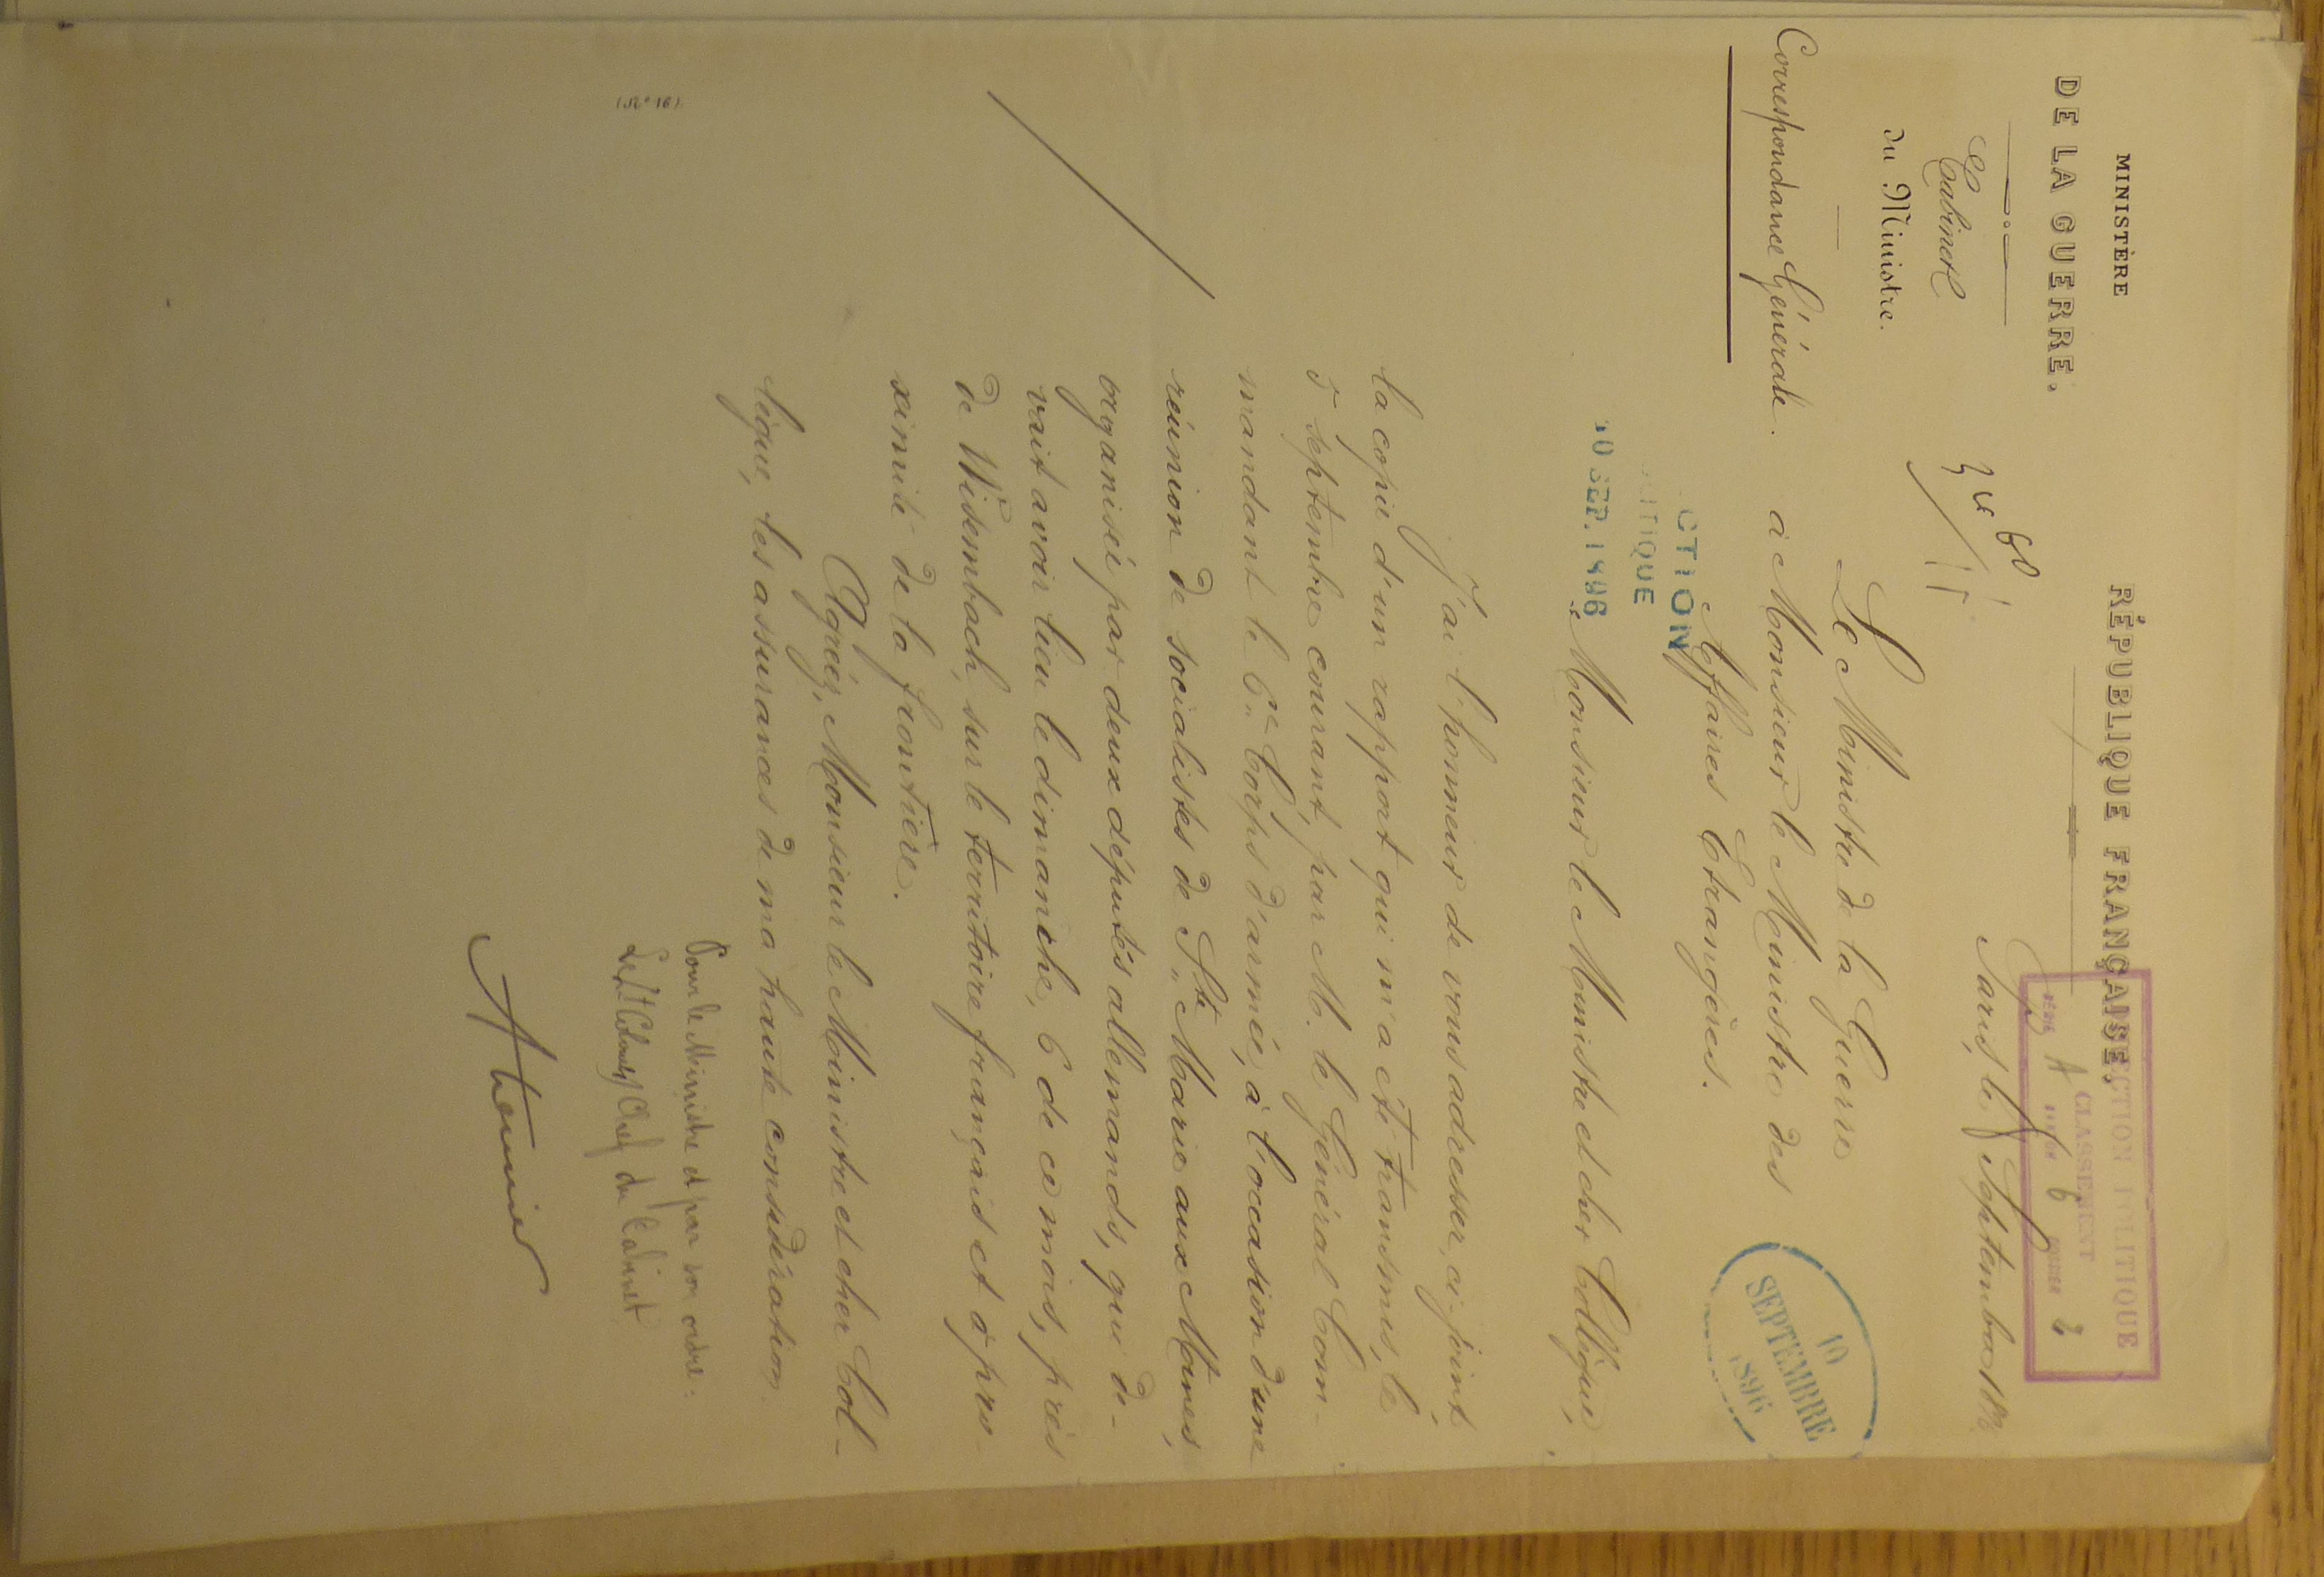 MINISTÈRE
DE LA GUERRE.
Cabinet
du Ministre.
Correspondance Générale.
RÉPUBLIQUE FRANÇAISE.
DIRECTION POLITIQUE
CLASSEMENT
SÉRIE A 6 DOSSIER 2
Paris, le Septembre 189
Le Ministre de la Guerre
à Monsieur le Ministre des
Affaires Etrangères.
10
SEPTEMBRE
1896
CTION
TIQUE
10 SEP. 1896
Monsieur le Ministre et cher Collègue,
J'ai l'honneur de vous adresser, ci-joint,
la copie d'un rapport qui m'a été transmis, le
5 septembre courant, par M. le Général Com-
mandant le 6e Corps d'armée, à l'occasion d'une
réunion de socialistes de Ste Marie aux Mines,
organisée par deux députés allemands, qui de-
vait avoir lieu le dimanche, 6 de ce mois, près
de Wisembach, sur le territoire français et à pro-
ximité de la frontière.
Agréez, Monsieur le Ministre et cher Col-
lègue, les assurances de ma haute considération.
Pour le Ministre et par son ordre:
Le Lt Colonel Chef du Cabinet
(No 16).